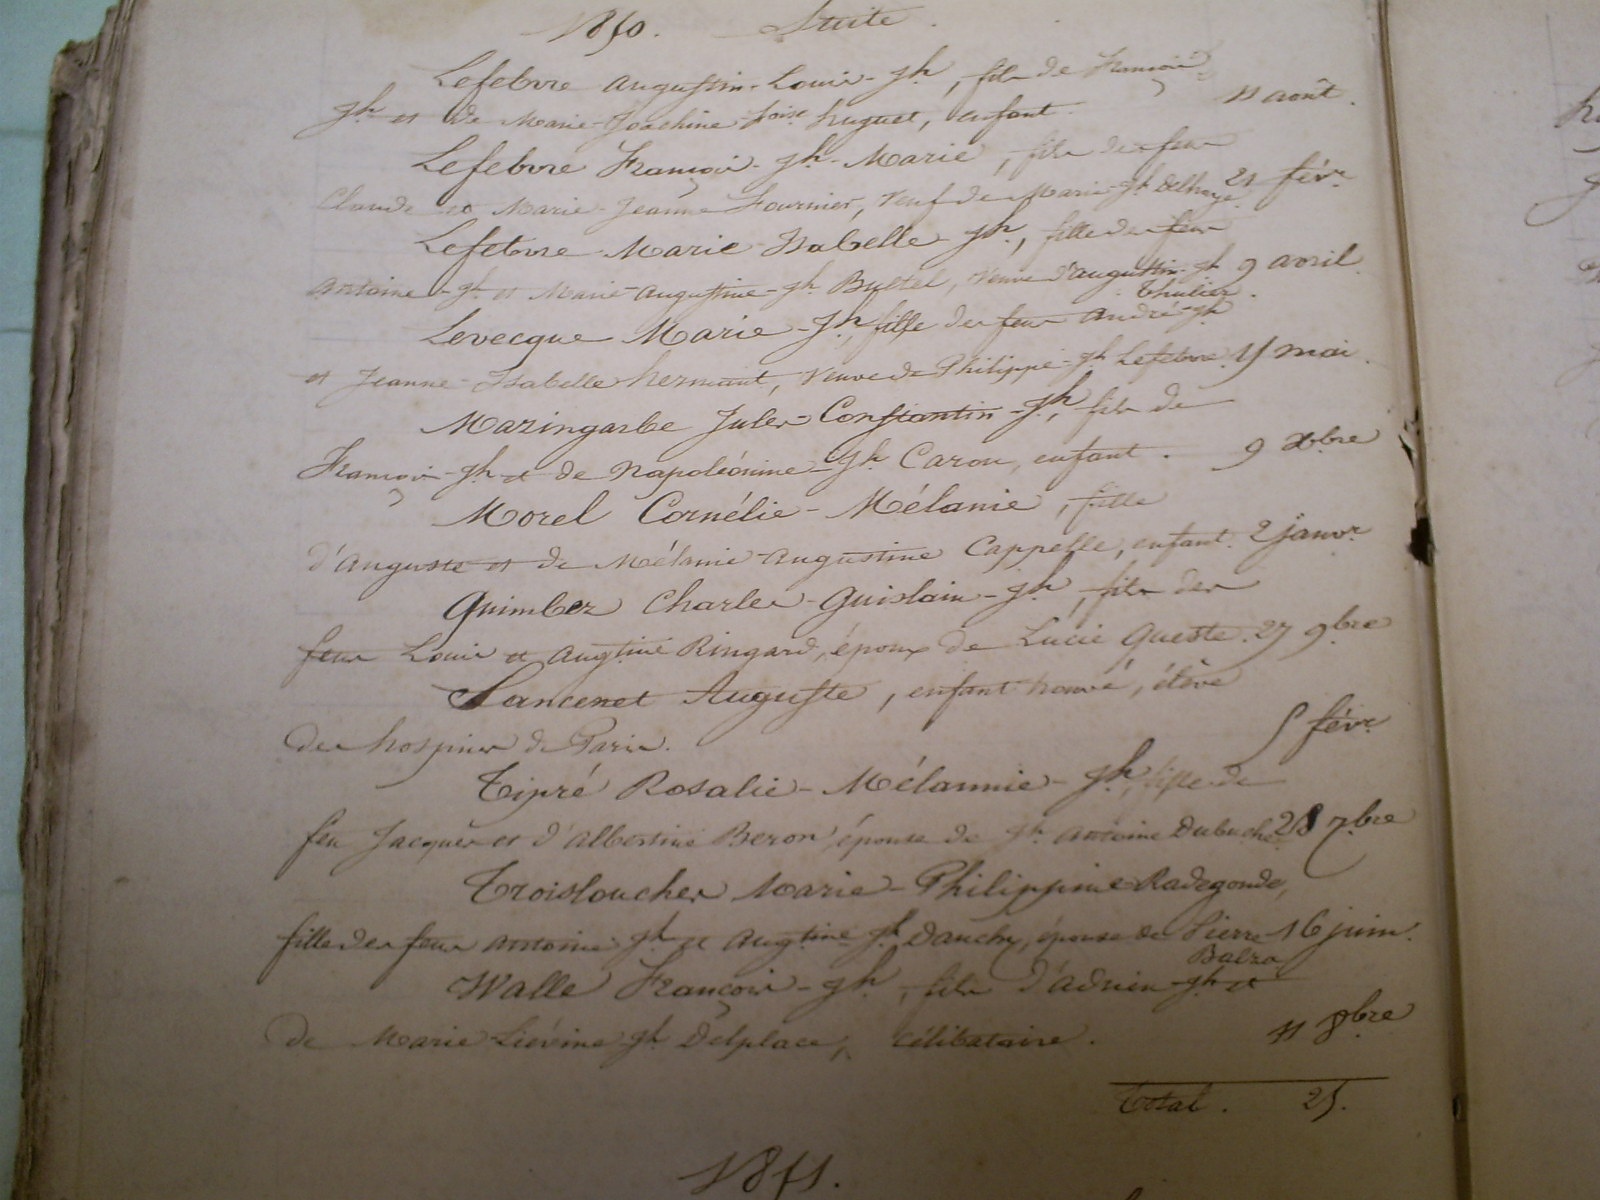 1850. Suite.
Lefebvre Augustin-Louis-Jh, fils de François
Jh et de Marie-Joachine-foise huguet, enfant. 11 août.
Lefebvre François-Jh-Marie, fils des feux
Claude et Marie-Jeanne Fournier, veuf de Marie-Jh Delhaye. 21 févr
Lefebvre Marie-Isabelle-Jh, fille des feux
Antoine-Jh et Marie-Augustine-Jh Bultel, veuve d'Augustin-Jh Thulier. 9 avril.
Levecque Marie-Jh, fille des feux André-Jh
et Jeanne-Isabelle hermant, veuve de Philippe-Jh Lefebvre. 15 mai.
Mazingarbe Jules-Constantin-Jh, fils de
François-Jh et de Napoléonine-Jh Caron, enfant. 9 Xbre
Morel Cornélie-Mélanie, fille
d'Auguste et de Mélanie-Augustine Cappelle, enfant. 2 janvr
Quimbez Charles-Guislain-Jh, fils des
feux Louis et Augtine Ringard, époux de Lucie Queste. 27 9bre
Sancenet Auguste, enfant trouvé, élève
des hospices de Paris. 5 févr
Tipré Rosalie-Mélannie-Jh, fille de
feu Jacques et d'Albertine Beron, épouse de Jh Antoine Dubuche. 28 7bre
Troislouches Marie-Philippine Radegonde,
fille des feux Antoine Jh et Augtine-Jh Dauchy, épouse de Pierre Balza 16 juin.
Walle François-Jh, fils d'Adrien-Jh et
de Marie Liévine-Jh Delplace, célibataire. 11 8bre
Total. 25.
1851.